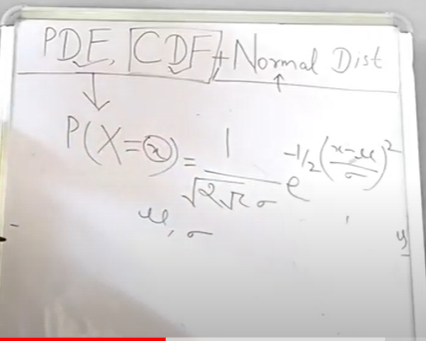 PDF, CDF, + Normal Dist
P(X=x) = 1/(√2π σ) e^(-1/2((x-μ)/σ)^2)
μ, σ
y